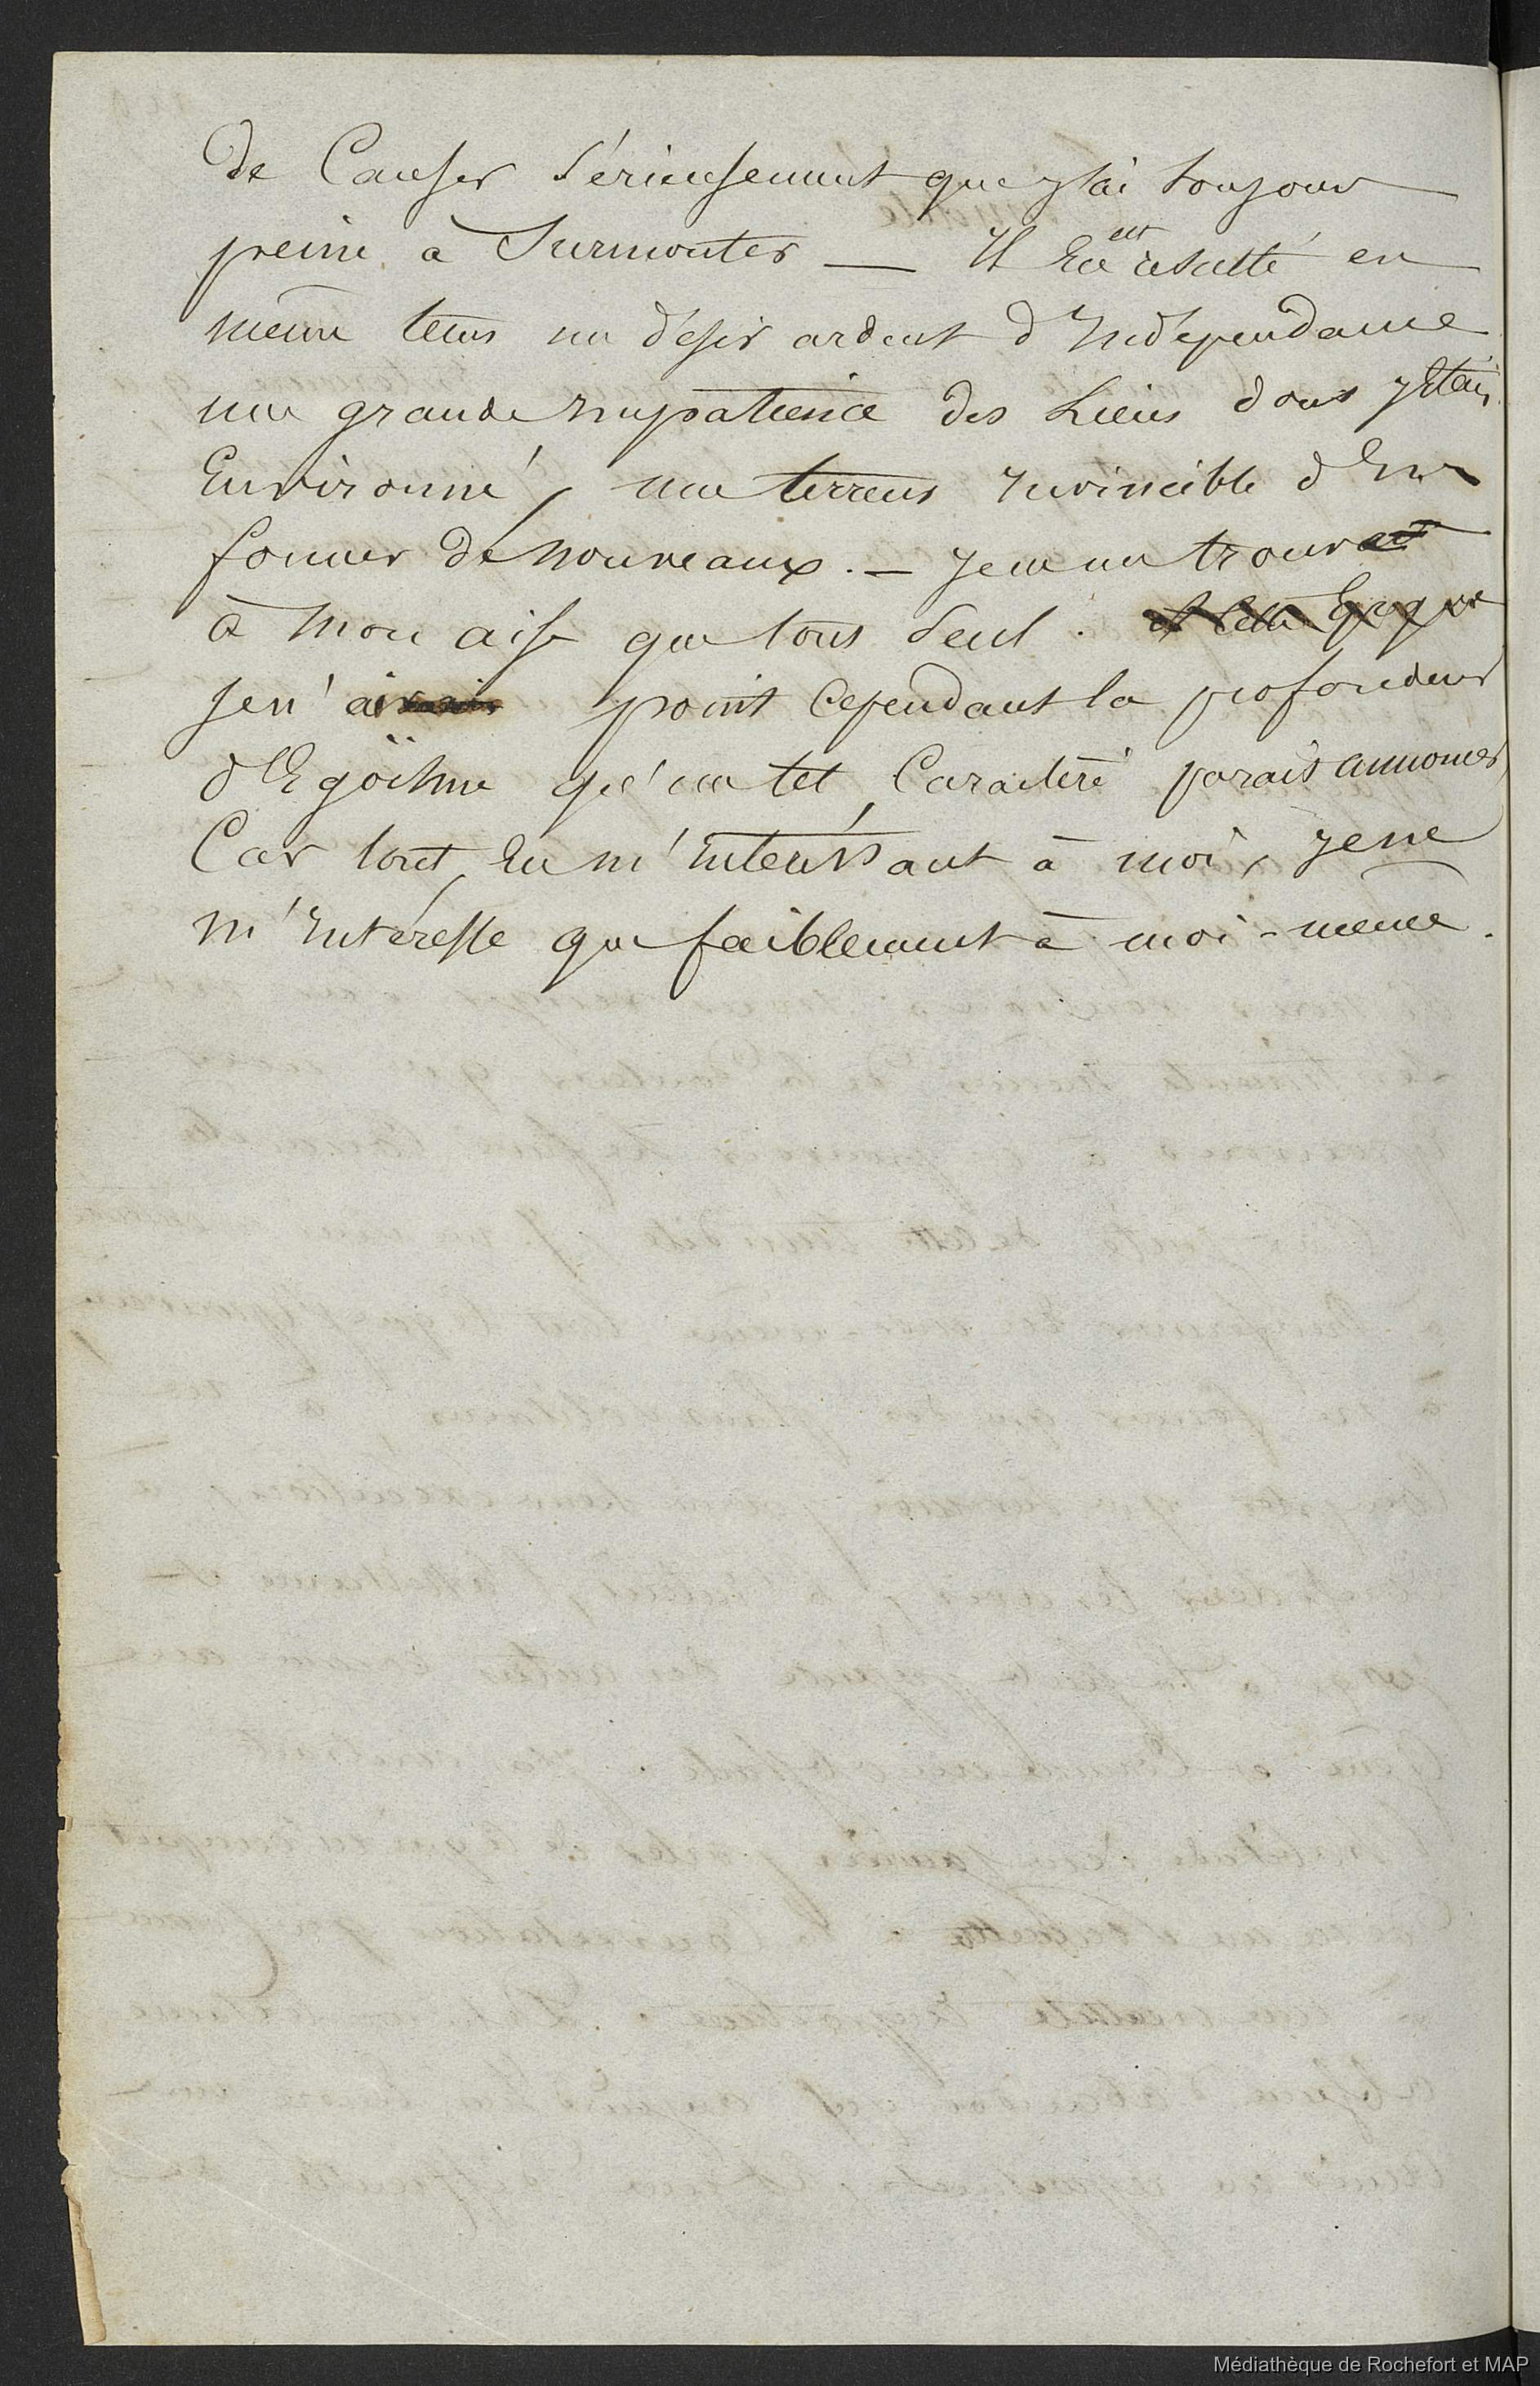 de Causer Sérieusement que j'ai toujour
peine à Surmonter — Il En est résulté en
même tems un désir ardent d'Independance
une grande impatience des Liens dont j'Etais
Environné, une terreur invincible d'En
former de nouveaux. — je ne me trouve
à mon aise que tout Seul. et cette Epoque
je n'ai point Cependant la profondeur
d'Egoïsme qu'un tel Caractère parait annoncer
Car tout En m'intéressant à moi, je ne
m'intéresse que faiblement à moi-meme.
Médiathèque de Rochefort et MAP